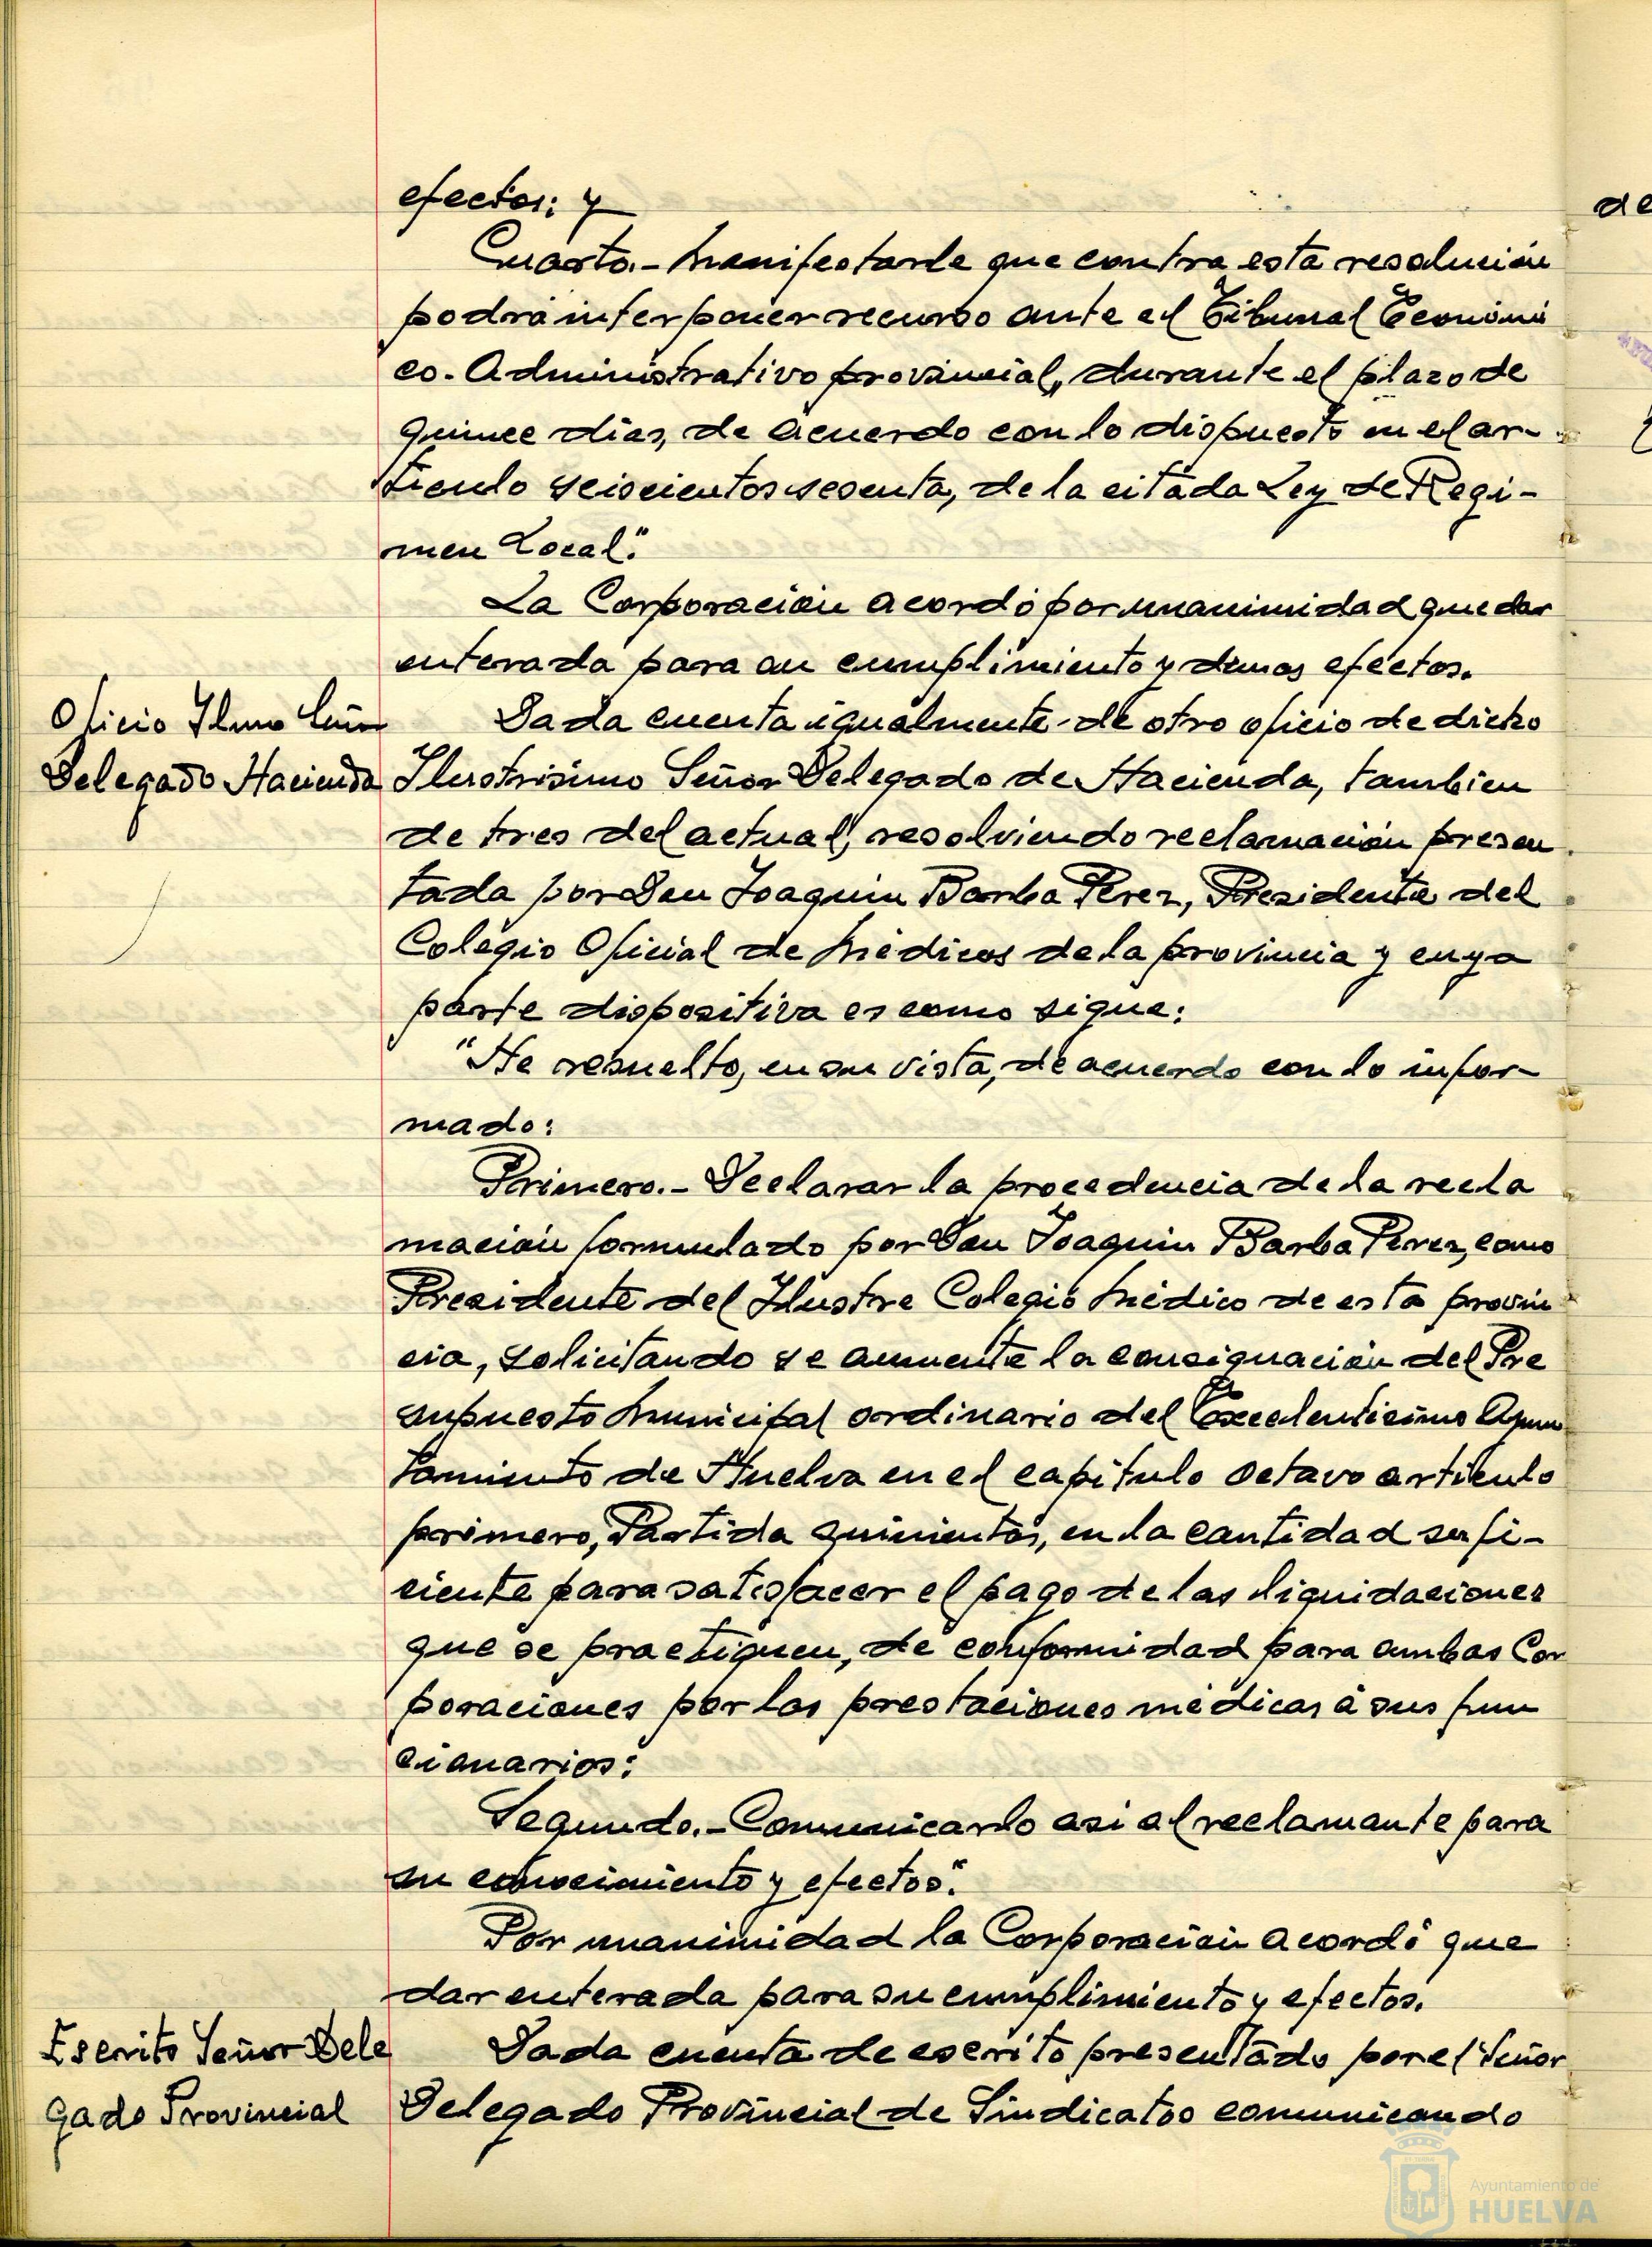 efectos; y
Cuarto.- Manifestarle que contra esta resolución
podrá interponer recurso ante el Tribunal Económi
co-Administrativo provincial, durante el plazo de
quince dias, de acuerdo con lo dispuesto en el ar-
tículo seiscientos sesenta, de la citada Ley de Regi-
men Local."
La Corporación acordó por unanimidad quedar
enterada para su cumplimiento y demas efectos.
Oficio Ilmo Señor
Delegado Hacienda
Dada cuenta igualmente de otro oficio de dicho
Ilustrisimo Señor Delegado de Hacienda, tambien
de tres del actual, resolviendo reclamación presen
tada por Don Joaquin Barba Perez, Presidente del
Colegio Oficial de Médicos de la provincia y cuya
parte dispositiva es como sigue:
"He resuelto, en su vista, de acuerdo con lo infor-
mado:
Primero.- Declarar la procedencia de la recla
mación formulado por Don Joaquin Barba Perez, como
Presidente del Ilustre Colegio Médico de esta provin
cia, solicitando se aumente la consignación del Pre
supuesto Municipal ordinario del Excelentisimo Ayun
tamiento de Huelva en el capítulo octavo artículo
primero, Partida quinientos, en la cantidad sufi-
ciente para satisfacer el pago de las liquidaciones
que se practiquen, de conformidad para ambas Cor
poraciones por las prestaciones médicas a sus fun
cionarios:
Segundo.- Comunicarlo asi al reclamante para
su conocimiento y efectos."
Por unanimidad la Corporación acordó que
dar enterada para su cumplimiento y efectos.
Escrito Señor Dele
gado Provincial
Dada cuenta de escrito presentado por el Señor
Delegado Provincial de Sindicatos comunicando
de
Ayuntamiento de
HUELVA